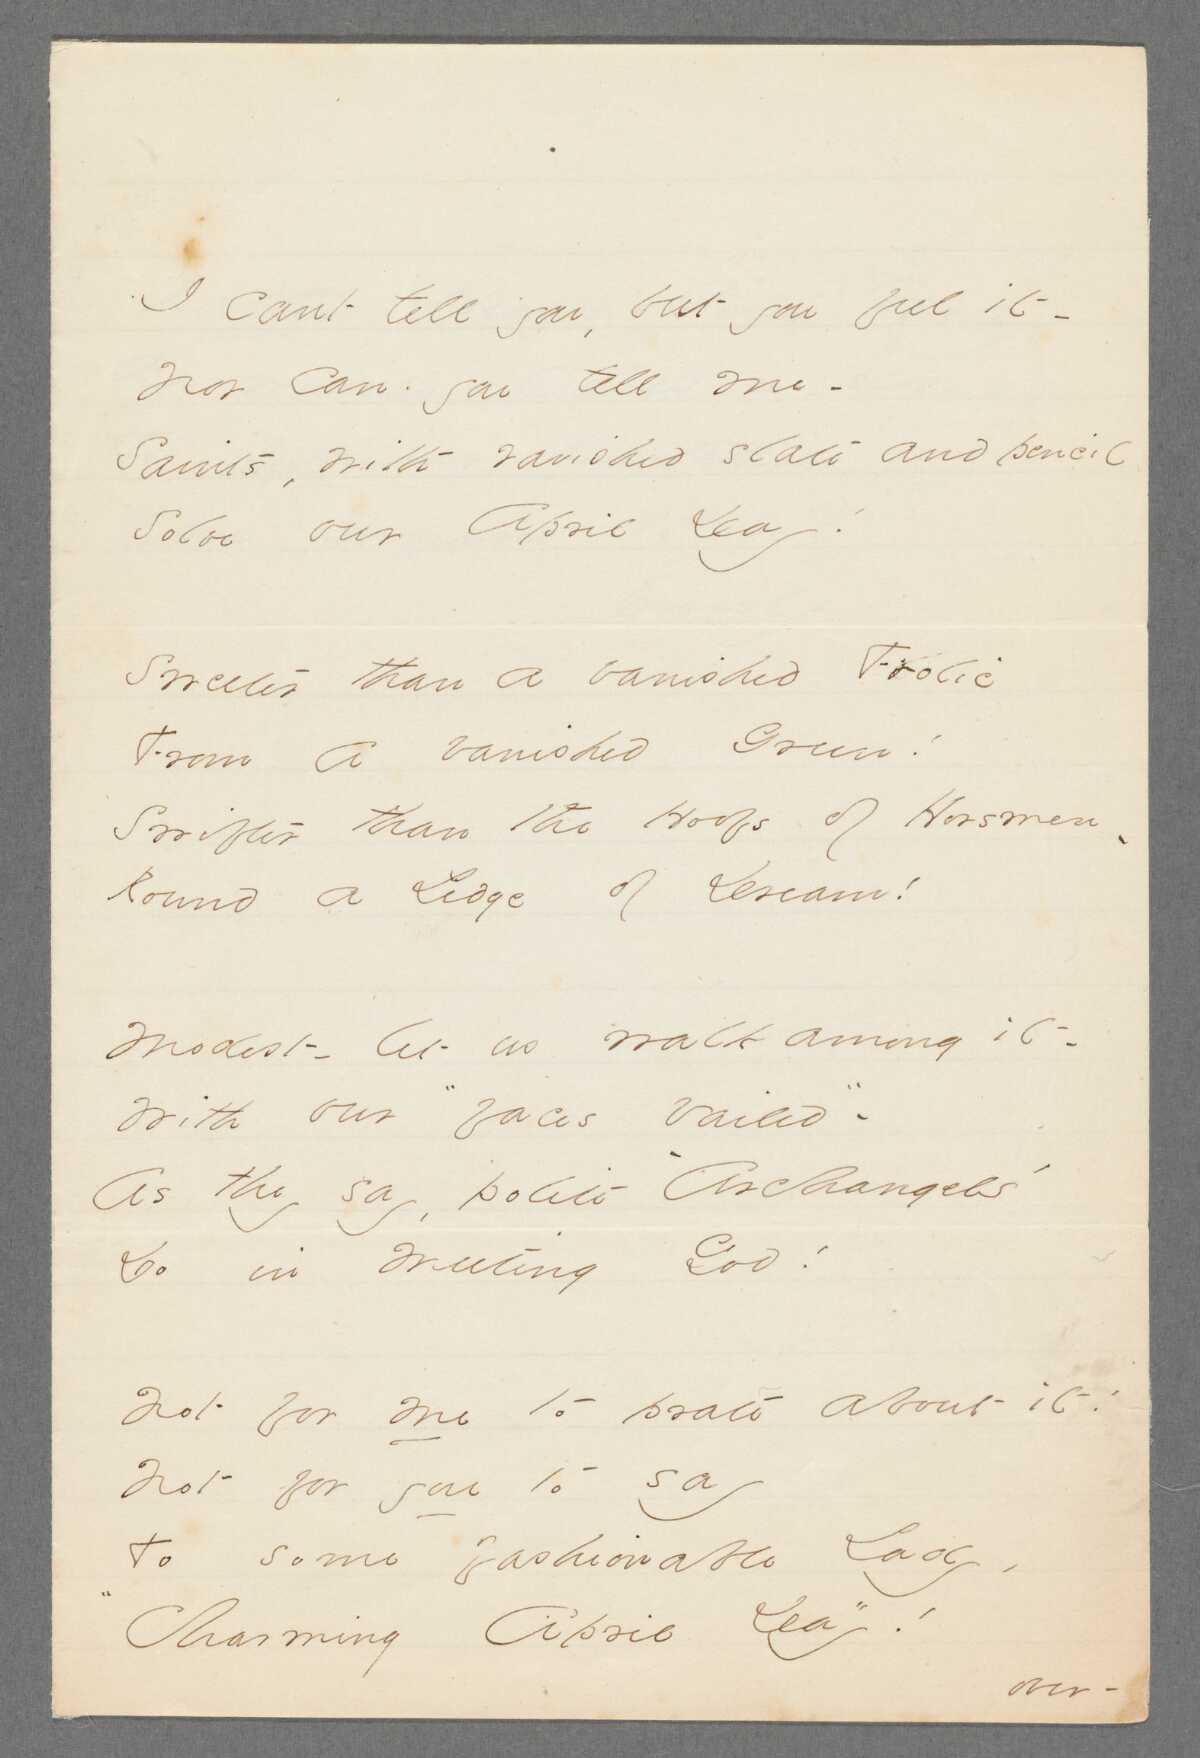 I cant tell you, but you feel it -
Nor can you tell me -
Saints, with vanished slate and pencil
Solve our April Day!
Sweeter than a vanished Frolic
From a vanished Green!
Swifter than the Hoofs of Horsmen
Round a Ledge of Dream!
Modest - let us walk among it -
With our "faces vailed" -
As they say, polite "Archangels"
Do in meeting God!
Not for me to prate about it!
Not for you to say
To some fashionable Lady,
"Charming April Day"!
over -